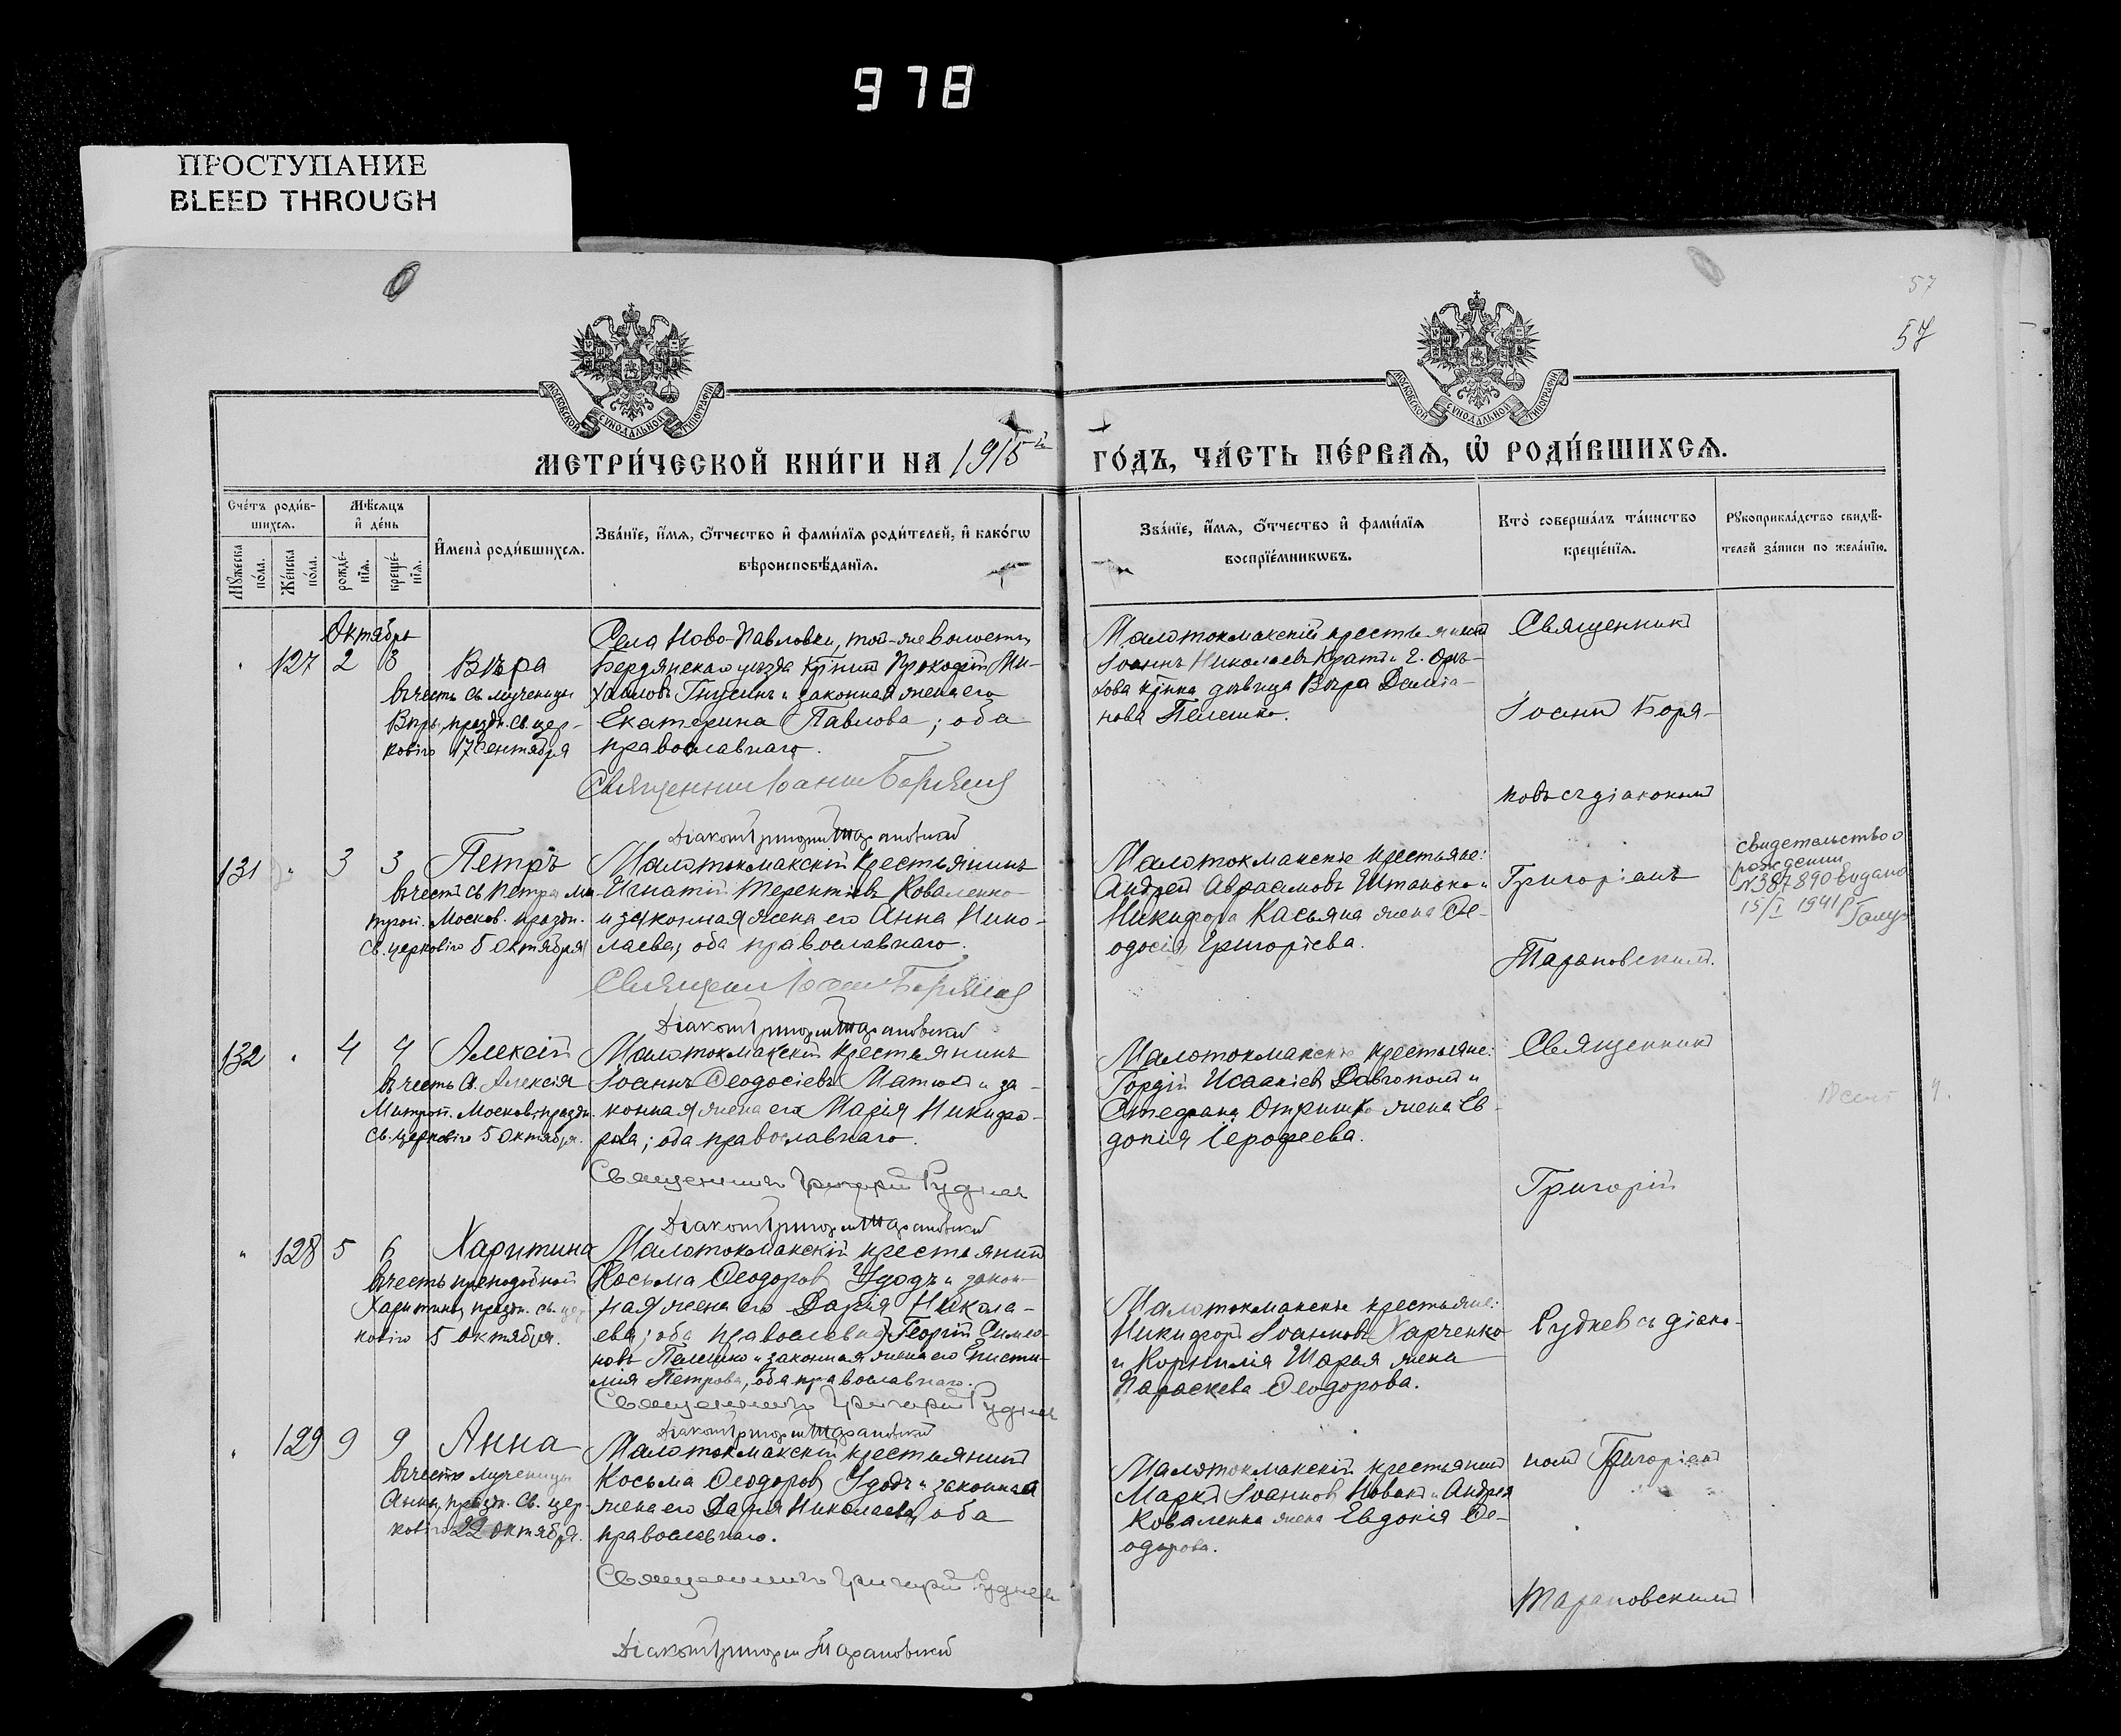 978
ПРОСТУПАНИЕ
BLEED THROUGH
57
57
МОСКОВСКОЙ СѴНОДАЛЬНОЙ ТИПОГРАФІИ
МОСКОВСКОЙ СѴНОДАЛЬНОЙ ТИПОГРАФІИ
МЕТРИ́ЧЕСКОЙ КНИ́ГИ НА 1915й
ГО́ДЪ, ЧА́СТЬ ПЕ́РВАѦ, Ѽ РОДИ́ВШИХСѦ.
Сче́тъ роди́в-
шихсѧ.
Мꙋ́жеска
по́ла.
Же́нска
по́ла.
Мѣ́сѧцъ
и҆ де́нь
рожде́-
нїѧ.
креще́-
нїѧ.
И҆мена̀ роди́вшихсѧ.
Зва́нїе, и҆́мѧ, ѻ҆́тчество и҆ фами́лїѧ роди́телей, и҆ како́гѡ
вѣроисповѣ́данїѧ.
Зва́нїе, и҆́мѧ, ѻ҆́тчество и҆ фами́лїѧ
воспрїе́мникѡвъ.
Кто̀ соверша́лъ та́инство
креще́нїѧ.
Рꙋкоприкла́дство свидѣ́-
телей за́писи по жела́нїю.
Октябрь
" 127 2 3 Вѣра
въ честь св. мученицы
Вѣры, праздн. св. цер-
ковію 17 Сентября
Села Ново-Павловки, той-же волости,
Бердянскаго уѣзда кр-нинъ Прокофій Ми-
хаиловъ Гнусинъ и законная жена его
Екатерина Павлова; оба
православнаго.
Священник Іоанн Боряков
Діакон Григорій Тарановскій
Малотокмакскій крестьянинъ
Іоаннъ Николаевъ Кратъ и г. Орѣ-
хова кр-нка дѣвица Вѣра Даміа-
нова Пелешко.
Священникъ
Іоаннъ Боря-
ковъ съ діакономъ
Григоріемъ
Тарановскимъ.
131 " 3 3 Петръ
въ честь св. Петра Ми-
троп. Москов. праздн.
св. церковію 5 Октября
Малотокмакскій крестьянинъ
Игнатій Терентіевъ Коваленко
и законная жена его Анна Нико-
лаева; оба православнаго.
Священник Іоанн Боряков
Діакон Григорій Тарановскій
Малотокмакскіе крестьяне:
Андрей Авраамовъ Штанько и
Никифора Касьяна жена Ѳе-
одосія Григоріева.
Свидетельство о
рождении
N387890 выдано
15/I 1941 г
132 " 4 4 Алексій
въ честь св. Алексія
Митроп. Москов. праздн.
св. церковію 5 Октября.
Малотокмакскій крестьянинъ
Іоаннъ Ѳеодосіевъ Матюхъ и за-
конная жена его Марія Никифо-
рова; оба православнаго.
Священникъ Григорій Рудневъ
Діакон Григорій Тарановскій
Малотокмакскіе крестьяне:
Гордій Исаакіев Довгополъ и
Стефана Отришко жена Ев-
докія Іерофеева.
Священникъ
Григорій
Рудневъ съ діако-
номъ Григоріемъ
Тарановскимъ
" 128 5 6 Харитина
въ честь преподобной
Харитины, праздн. св. цер-
ковію 5 Октября.
Малотокмакскій крестьянинъ
Косьма Ѳеодоровъ Удодъ и закон-
ная жена его Дарія Никола-
ева; оба православнаго Георгій Симео-
новъ Пелешко и законная жена его Еписти-
мія Петрова, оба православнаго.
Священникъ Григорій Рудневъ
Діакон Григорій Тарановскій
Малотокмакскіе крестьяне:
Никифоръ Іоанновъ Харченко
и Корнилія Шарая жена
Параскева Ѳеодорова.
" 129 9 9 Анна
въ честь мученицы
Анны, праздн. св. цер-
ковію 22 Октября.
Малотокмакскій крестьянинъ
Косьма Ѳеодоровъ Удодъ и законная
жена его Дарія Николаева, оба
православнаго.
Священникъ Григорій Рудневъ
Діакон Григорій Тарановскій
Малотокмакскій крестьянинъ
Маркъ Іоанновъ Новакъ и Андрея
Коваленка жена Евдокія Ѳе-
одорова.